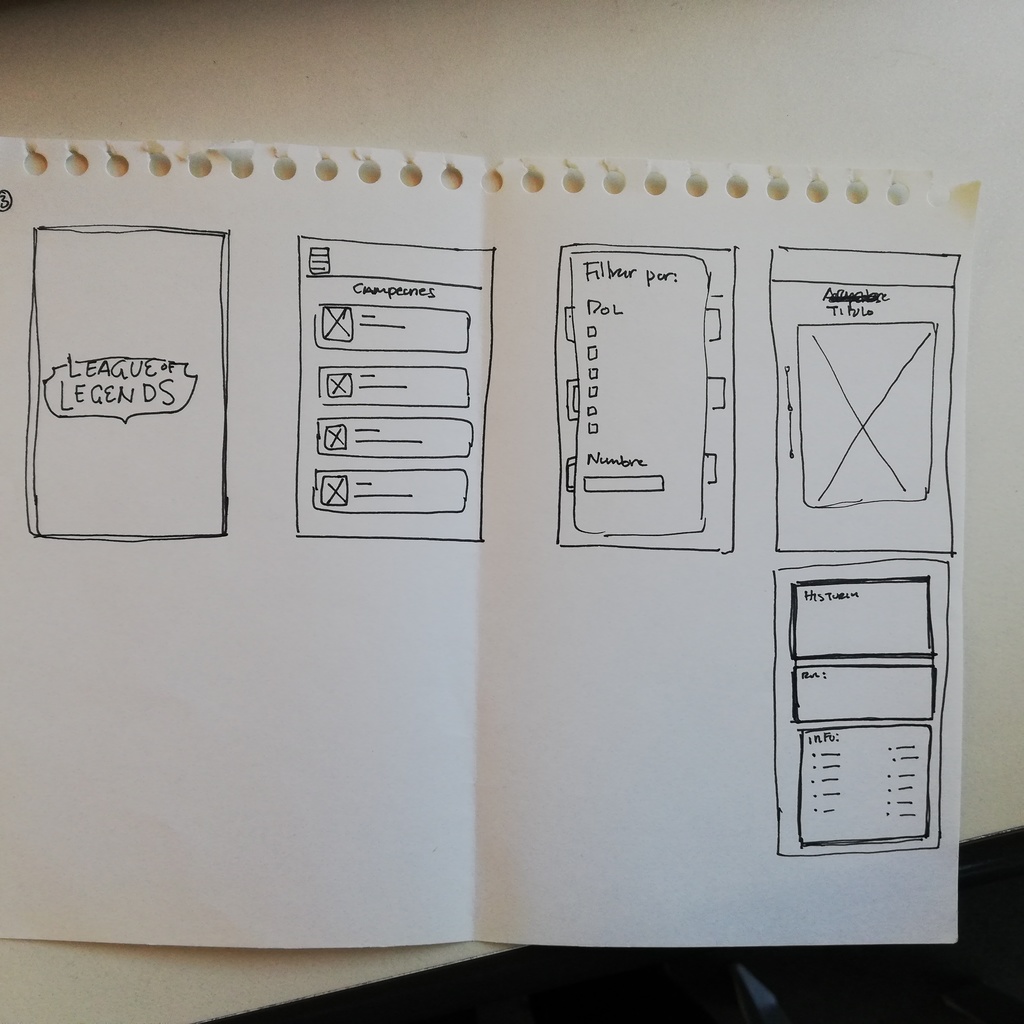 3
LEAGUE OF
LEGENDS
CAMPEONES
Filtrar por:
ROL
Nombre
TITULO
HISTORIA
ROL:
INFO: